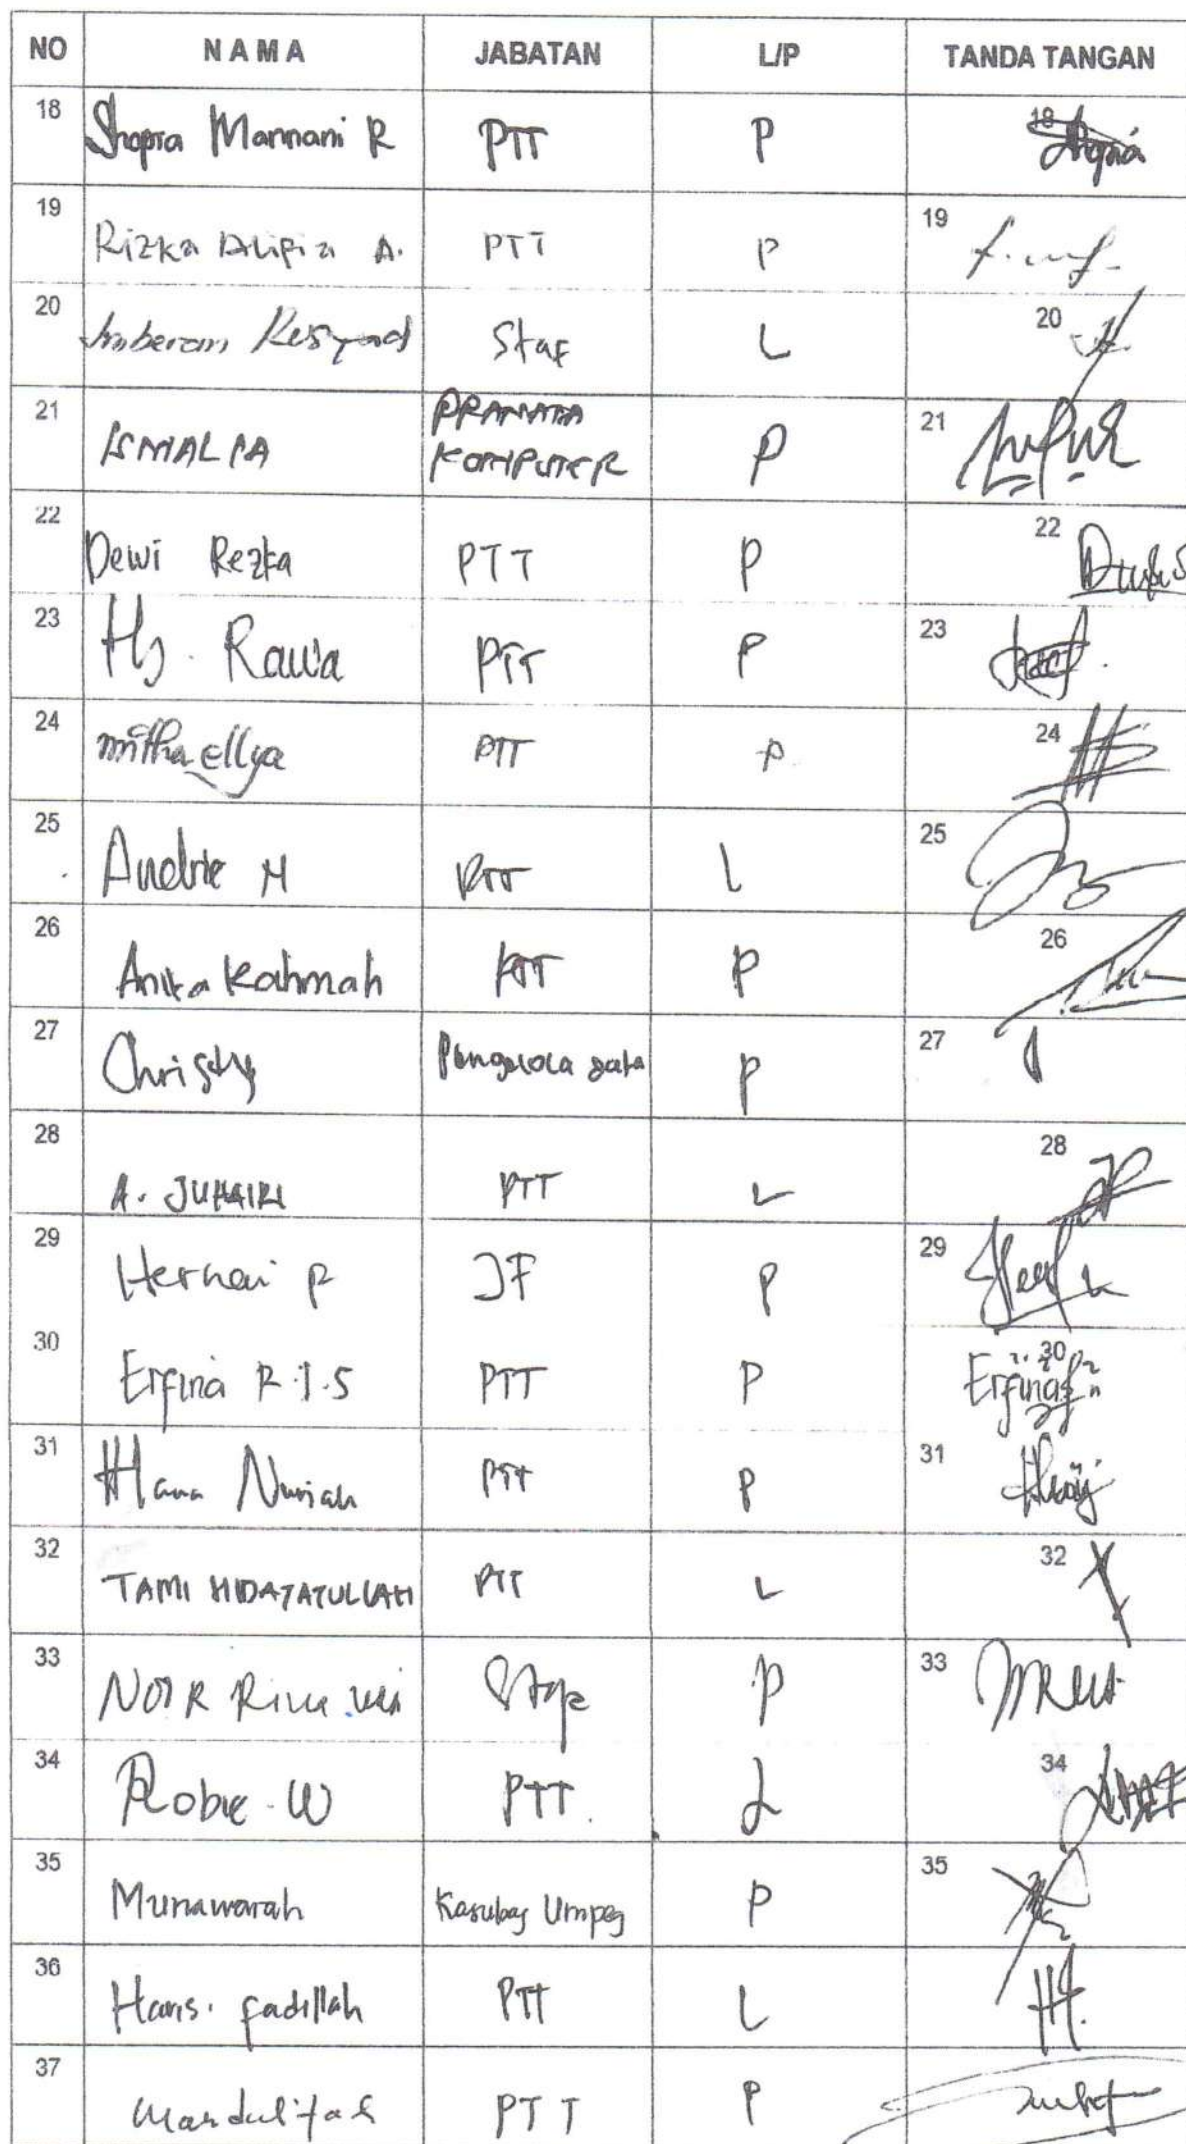 NO NAMA JABATAN L/P TANDA TANGAN
18 Shopia Mannani R PTT P 18
19 Rizka Alifia A. PTT P 19
20 Resyad Staf L 20
21 ISMALIA PRANATA KOMPUTER P 21
22 Dewi Rezka PTT P 22
23 Hj. Rawa PTT P 23
24 mitha ellya PTT P 24
25 Andrie M PTT L 25
26 Anita Rahmah PTT P 26
27 Christy Pengelola data P 27
28 A. JUHAIRI PTT L 28
29 Hernai P JF P 29
30 Erfina R.I.S PTT P 30
31 Hana Nuriah PTT P 31
32 TAMI HIDAYATULLAH PTT L 32
33 NOR Rina P 33
34 Robie W PTT L 34
35 Munawarah Kasubag Umpeg P 35
36 Haris. fadillah PTT L
37 PTT P